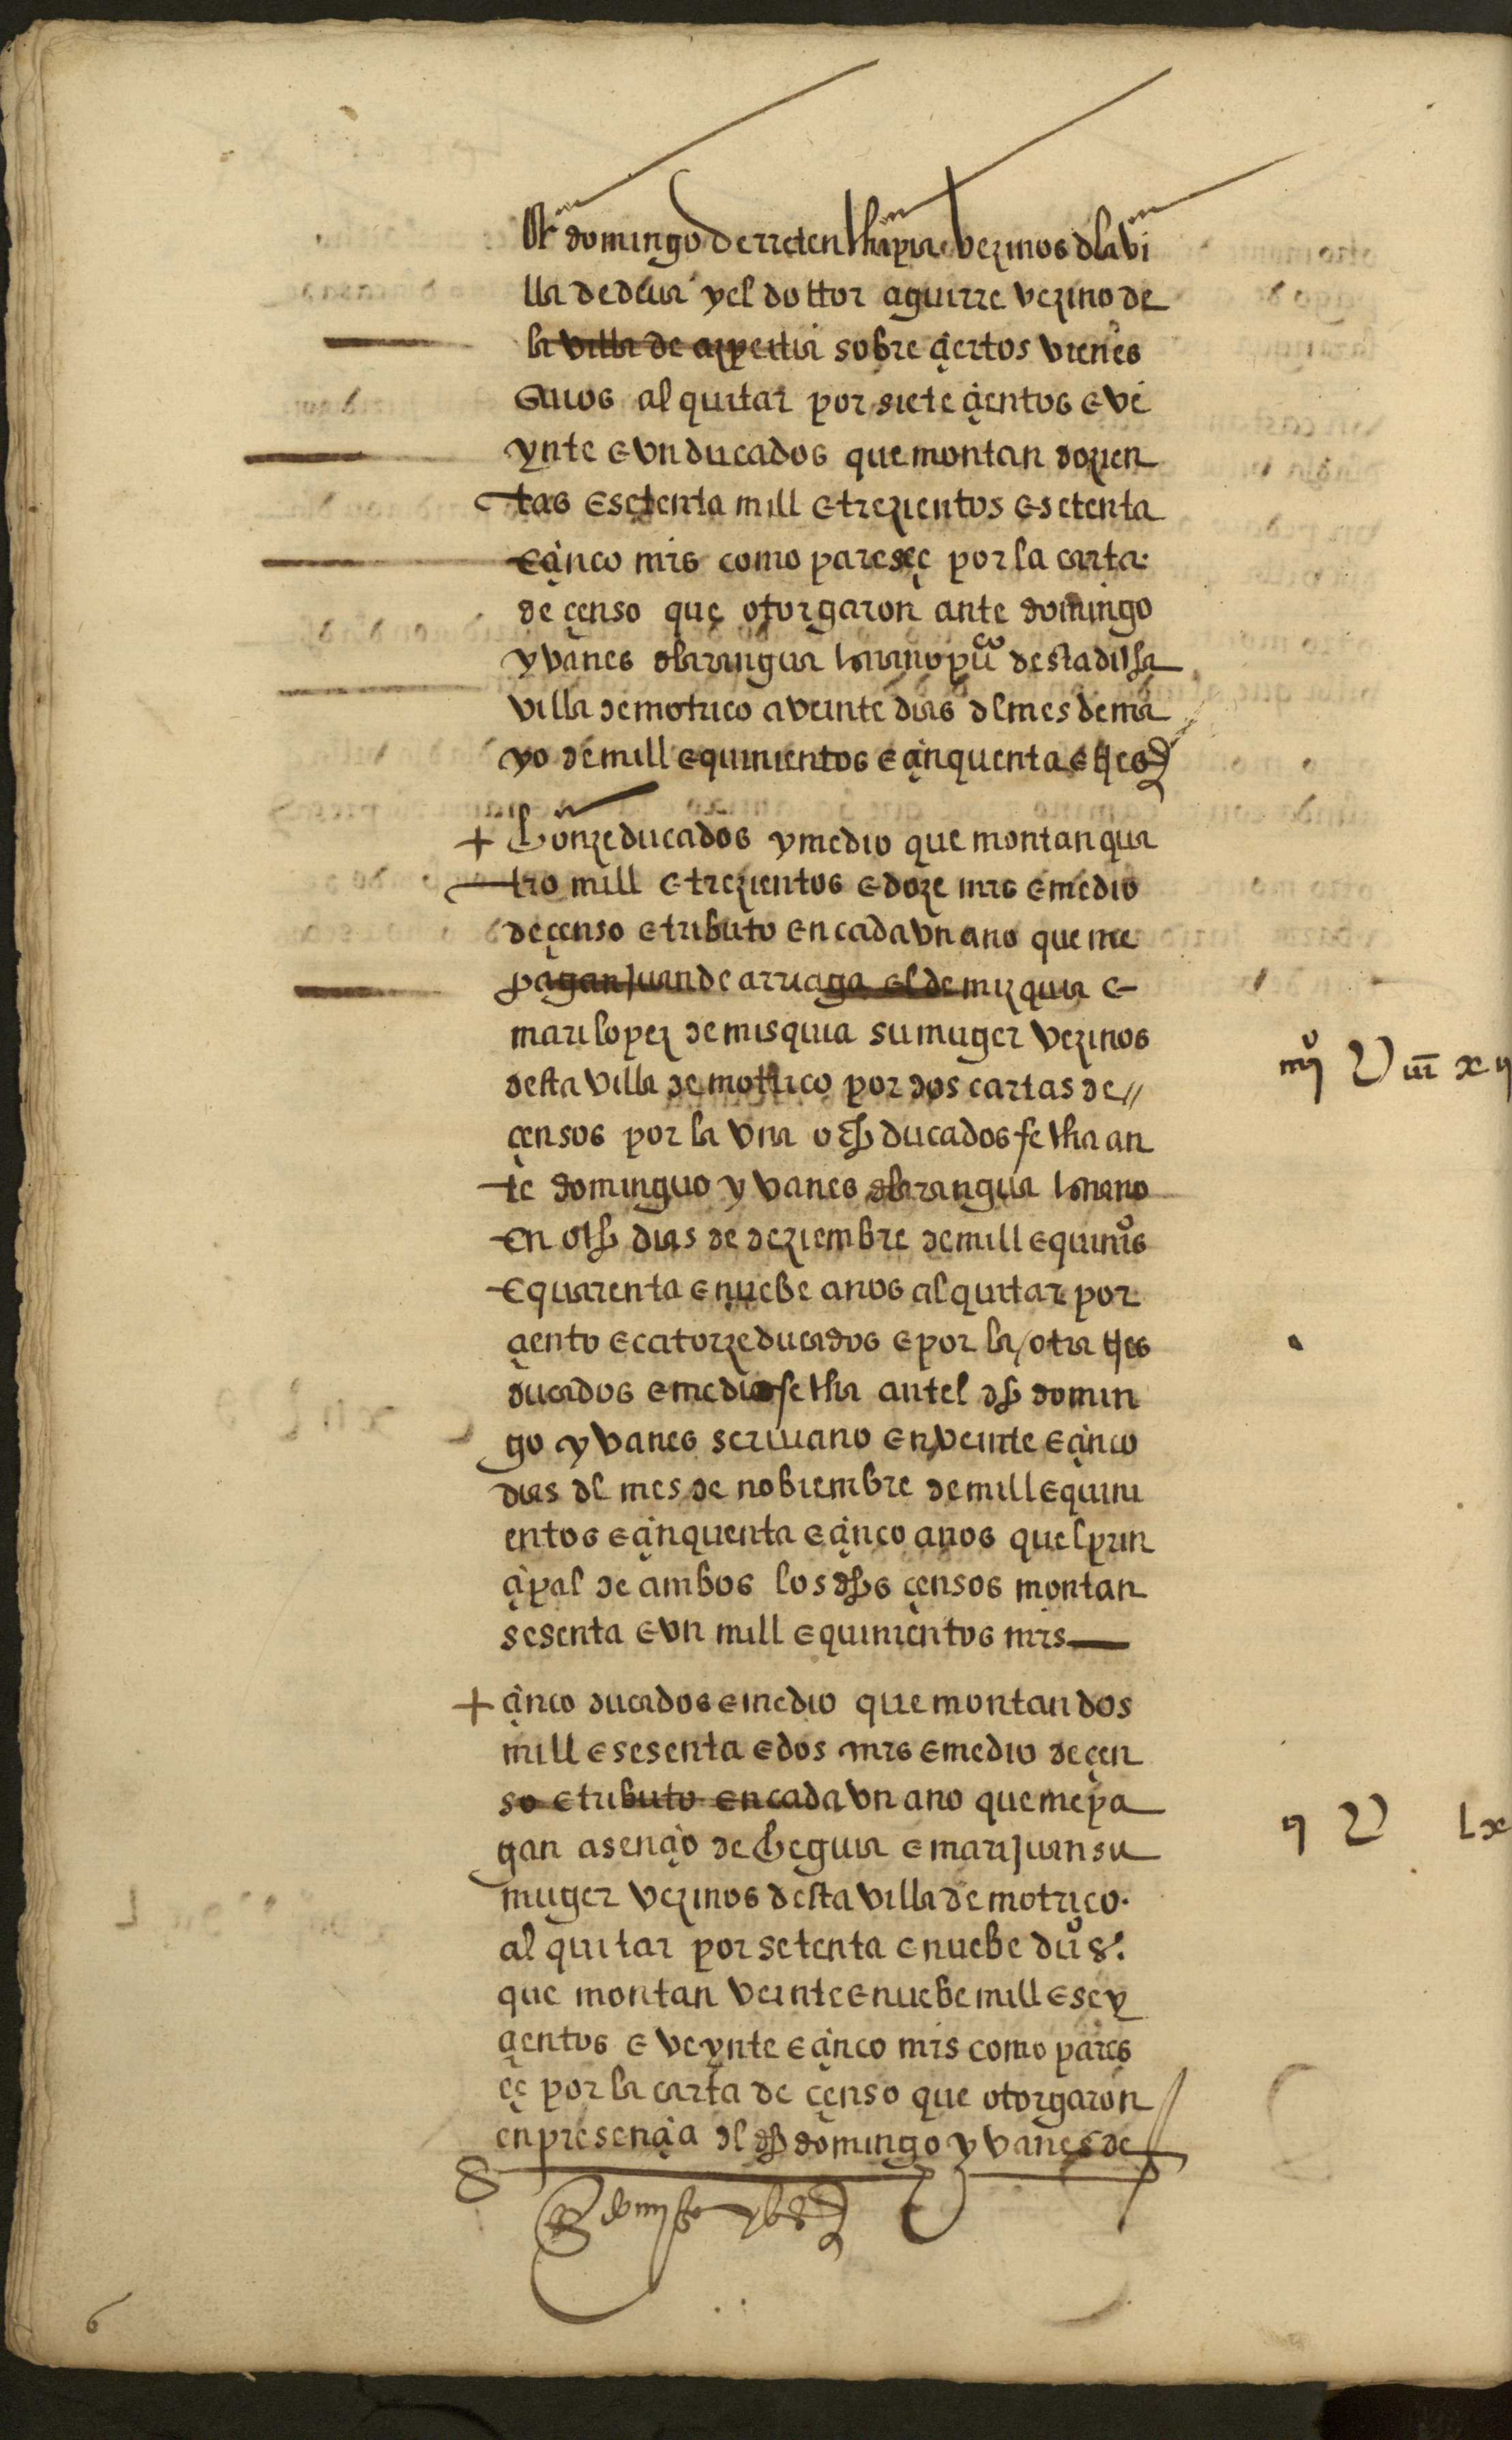 domingo de rreten vezinos dla vi
lla de deua y el dottor aguirre vezino de
la villa de azpeitia sobre çiertos vienes
suios al quitar por siete çientos e ve
ynte e vn ducados que montan dozien
tas e setenta mill e trezientos e setenta
e çinco mrs como paresçe por la carta
de çenso que otorgaron ante domingo
yvanes dlarangua puco desta dicha
villa de motrico a veinte dias dl mes de ma
yo de mill e quinientos e çinquenta e tres
+ honze ducados y medio que montan qua
tro mill e trezientos e doze mrs e medio
de çenso e tributo en cada vn ano que me
pagan Juan de arriaga el de mizquia e
mari lopez de misquia su muger vezinos
desta villa de motrico por dos cartas de //
çensos por la vna ocho ducados fecha an
te dominguo yvanes dlarangua
en ocho dias de deziembre de mill e quinios
e quarenta e nuebe anos al quitar por
çiento e catorze ducados e por la / otra tres
ducados e medio fecha antel dho domin
go yvanes scriuano en veinte e çinco
dias dl mes de nobiembre de mill e quini
entos e çinquenta e çinco anos quel prin
çipal de ambos los dhos çensos montan
sesenta e vn mill e quinientos mrs
iiijº U iii xij
+ çinco ducados e medio que montan dos
mill e sesenta e dos mrs e medio de çen
so e tributo en cada vn ano que me pa
gan asençio de heguia e mari Juan su
muger vezinos desta villa de motrico.
al quitar por setenta e nuebe duos.
que montan veinte e nuebe mill e sey
çientos e veynte e çinco mrs como pares
çe por la carta de çenso que otorgaron
en presençia dl dho domingo yvanes de
ij U lx
6